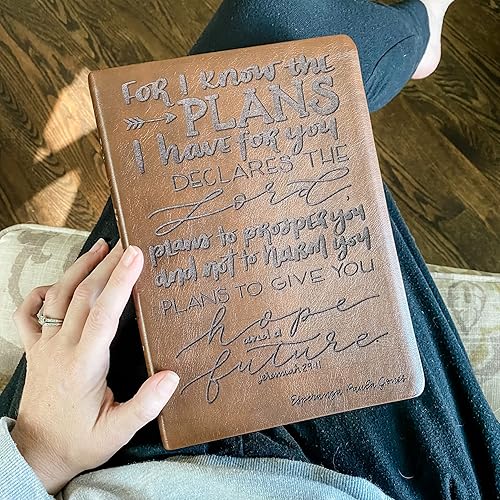 FOR I KNOW THE
PLANS
I have FOR YOU
DECLARES THE
Lord
plans to PROSPER YOU
and not to HARM YOU
PLANS TO GIVE YOU
hope
and a
future
Jeremiah 29:11
Esperanza Jones